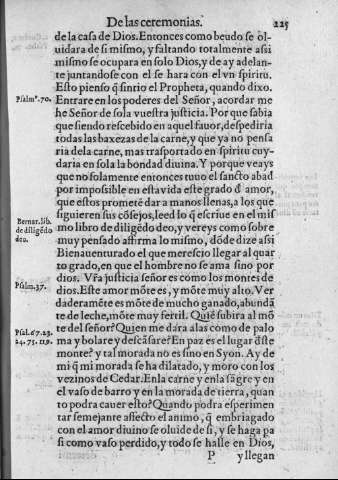 De las ceremonias. 225
de la casa de Dios. Entonces como beudo se ol-
uidara de si mismo, y faltando totalmente a si
mismo se ocupara en solo Dios, y de ay adelan-
te juntandose con el se hara con el vn spiritu.
Esto pienso q̃ sintio el Propheta, quando dixo.
Psalmº. 70. Entrare en los poderes del Señor, acordar me
he Señor de sola vuestra justicia. Por que sabia
que siendo rescebido en aquel fauor, despediria
todas las baxezas de la carne, y que ya no pensa
ria de la carne, mas trasportado en spiritu cuy-
daria en sola la bondad diuina. Y porque veays
que no solamente entonces tuuo el sancto abad
por impossible en esta vida este grado d amor,
que estos promete dar a manos llenas, a los que
siguieren sus cõsejos, leed lo q̃ escriue en el mis
Bernar. lib. de diligẽdo deo.
mo libro de diligẽdo deo, y vereys como sobre
muy pensado affirma lo mismo, dõde dize assi
Bienauenturado el que meresçio llegar al quar
to grado, en que el hombre no se ama sino por
dios. Vr̃a justicia señor es como los montes de
Psalm. 37. dios. Este amor mõte es, y mõte muy alto. Ver
daderamẽte es mõte de mucho ganado, abundã
te de leche, mõte muy fertil. Quiẽ subira al mõ
Psal. 67. 23. te del señor? Quien me dara alas como de palo
24. 75. 119. ma y bolare y descãsare? En paz es el lugar dste
monte? y tal morada no es sino en Syon. Ay de
mi q̃ mi morada se ha dilatado, y moro con los
vezinos de Cedar. En la carne y en la sãgre y en
el vaso de barro y en la morada de tierra, quan
to podra cauer esto? Quando podra esperimen
tar semejante affecto el animo, q̃ embriagado
con el amor diuino se oluide de si, y se haga pa
si como vaso perdido, y todo se halle en Dios,
P y llegan